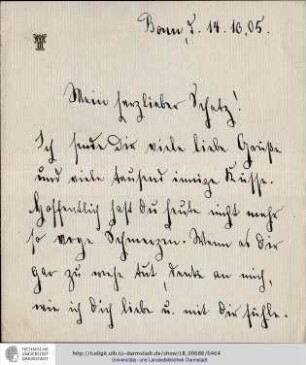 Bonn, d. 14.10.05.
Mein herzlieber Schatz!
Ich sende Dir viele liebe Grüße
und viele tausend innige Küsse.
Hoffentlich hast Du heute nicht mehr
so arge Schmerzen. Wenn es Dir
gar zu wehe tut, denke an mich,
wie ich Dich liebe u. mit Dir fühle.
TECHNISCHE
UNIVERSITÄT
DARMSTADT
http://tudigit.ulb.tu-darmstadt.de/show/LB_00686/0464
Universitäts- und Landesbibliothek Darmstadt